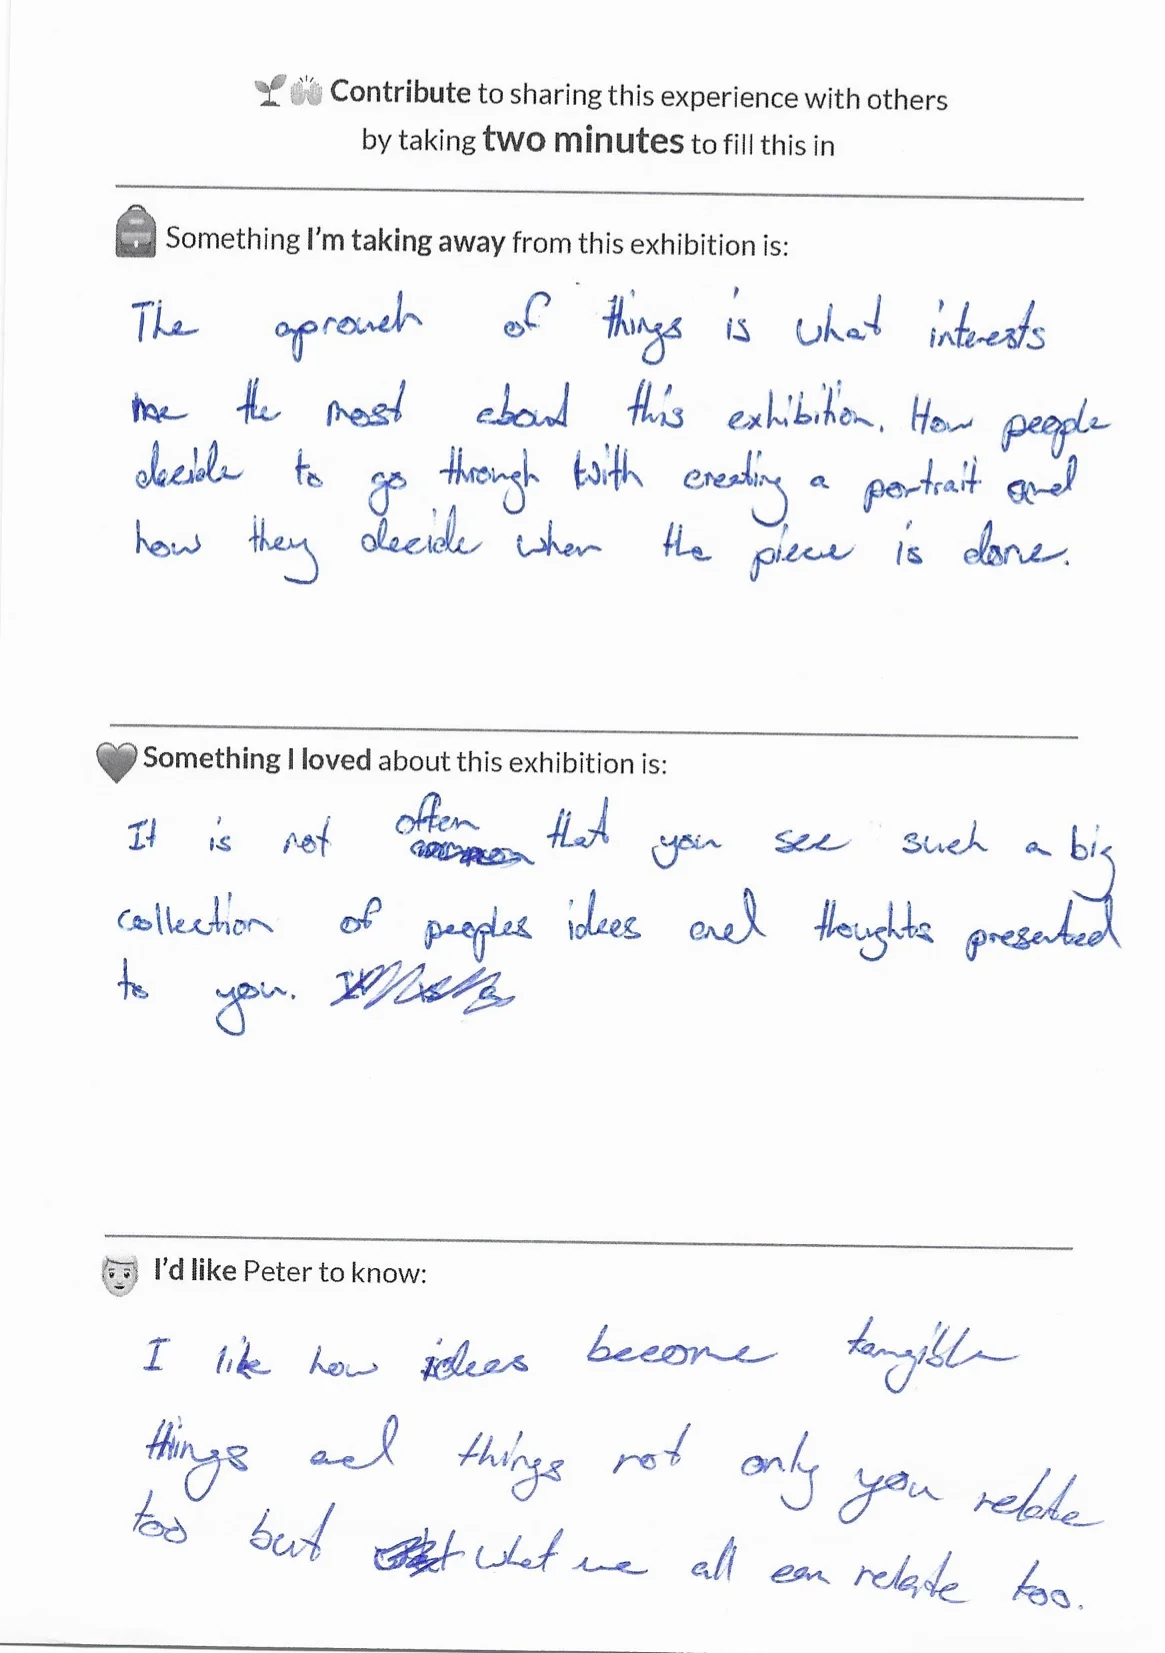 Contribute to sharing this experience with others
by taking two minutes to fill this in
Something I'm taking away from this exhibition is:
The aproach of things is what interests
me the most about this exhibition. How people
decide to go through with creating a portrait and
how they decide when the piece is done.
Something I loved about this exhibition is:
It is not often that you see such a big
collection of peoples ideas and thoughts presented
to you.
I'd like Peter to know:
I like how ideas become tangible
things and things not only you relate
too but what we all can relate too.